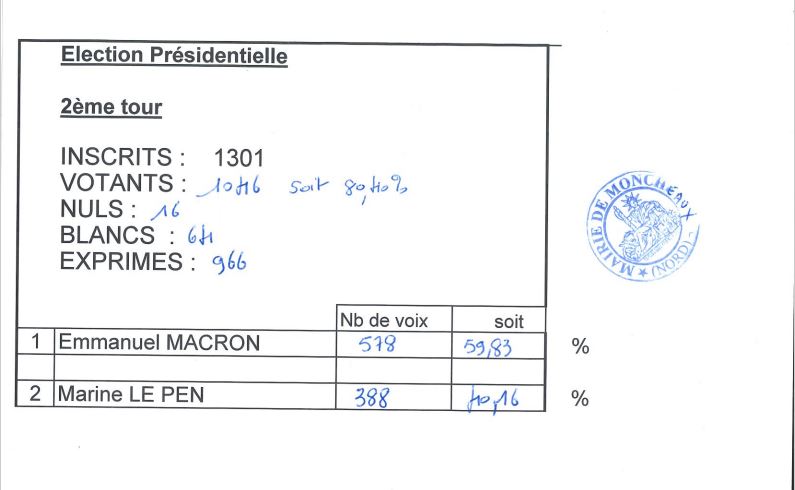 Election Présidentielle
2ème tour
INSCRITS : 1301
VOTANTS : 1046 soit 80,40%
NULS : 16
BLANCS : 64
EXPRIMES : 966
Nb de voix soit
1 Emmanuel MACRON 578 59,83 %
2 Marine LE PEN 388 40,16 %
MAIRIE DE MONCHEAUX
★ (NORD)